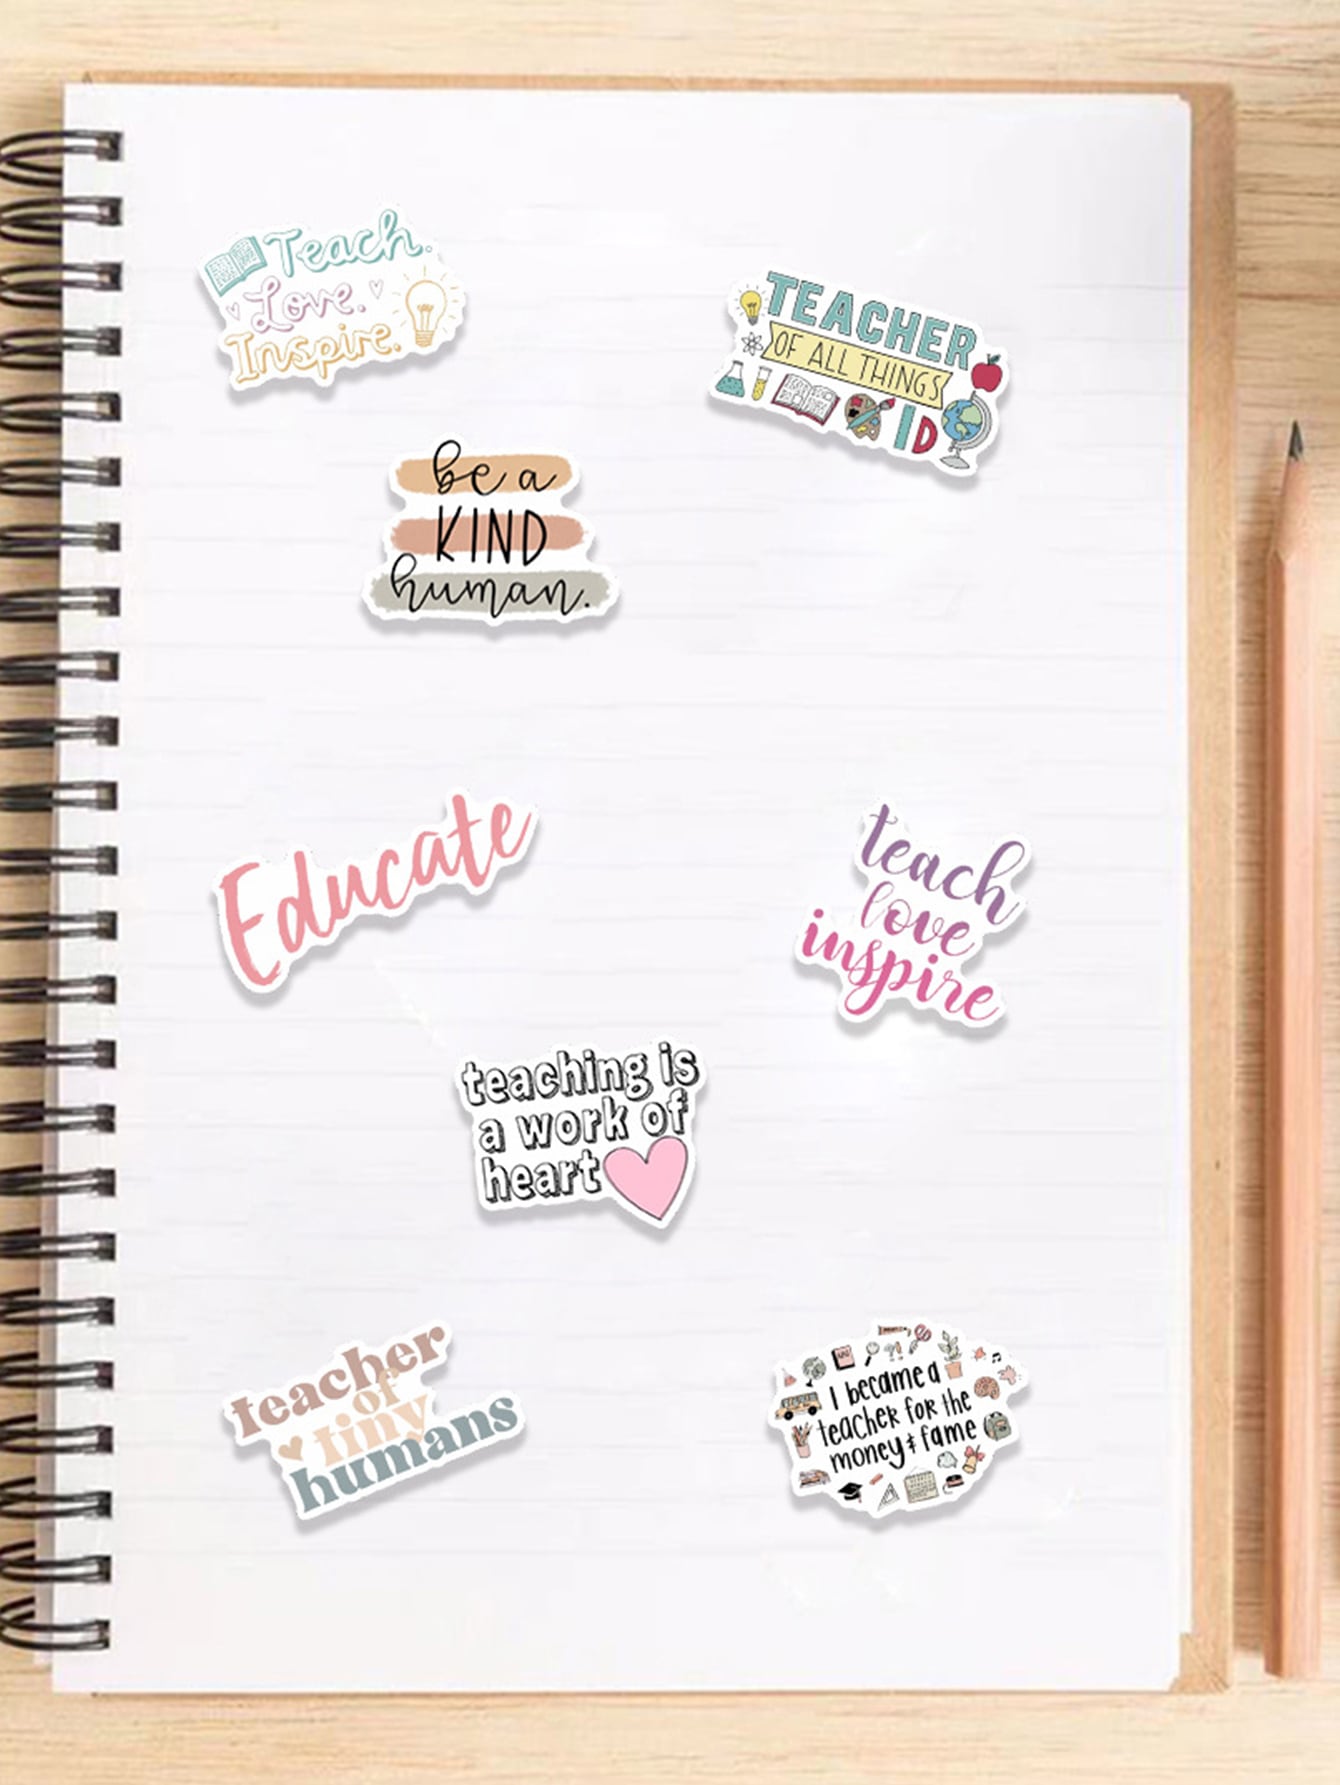 Teach.
Love.
Inspire.
TEACHER
OF ALL THINGS
be a
KIND
human.
Educate
teach
love
inspire
teaching is
a work of
heart
teacher
of
tiny
humans
I became a
teacher for the
money & fame